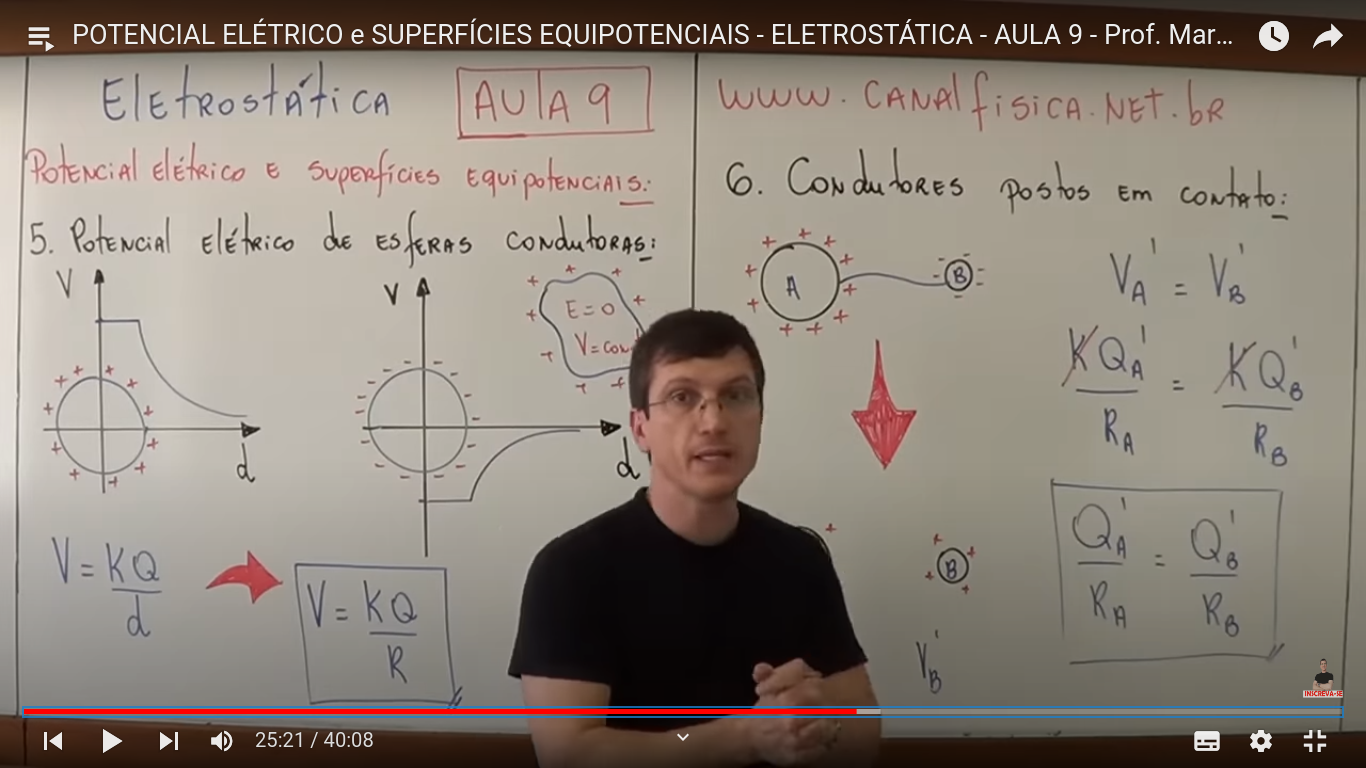 POTENCIAL ELÉTRICO e SUPERFÍCIES EQUIPOTENCIAIS - ELETROSTÁTICA - AULA 9 - Prof. Mar...
Eletrostática
AULA 9
Potencial elétrico e superfícies equipotenciais:
5. Potencial elétrico de esferas condutoras:
V
d
V
d
E=0
V=con
V = KQ/d
V = KQ/R
www.canalfisica.net.br
6. Condutores postos em contato:
A
B
V_A' = V_B'
KQ_A'/R_A = KQ_B'/R_B
B
V_B'
Q_A'/R_A = Q_B'/R_B
INSCREVA-SE
25:21 / 40:08